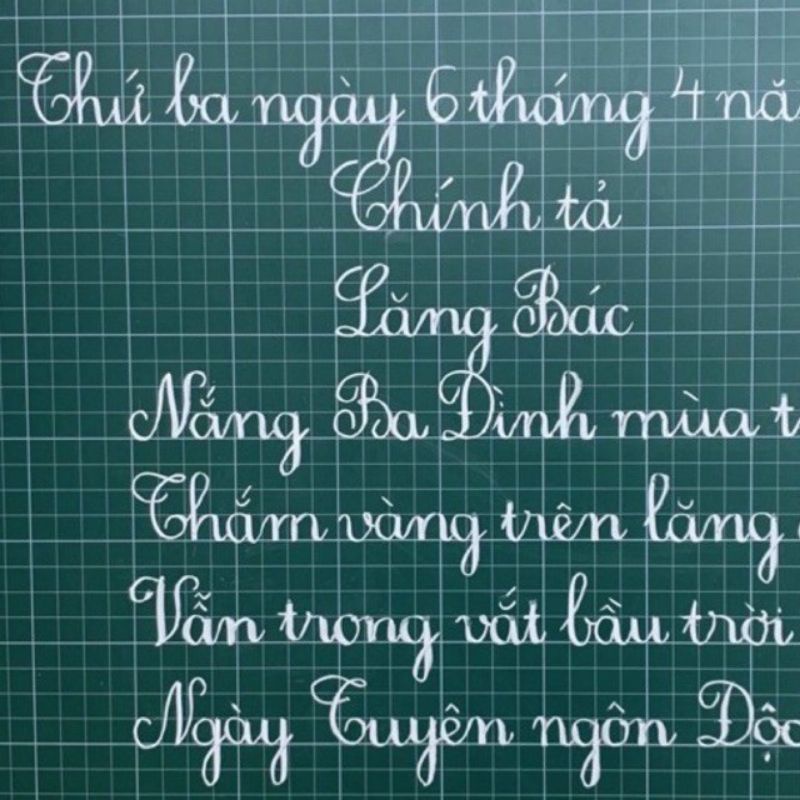 Thứ ba ngày 6 tháng 4 nă
Chính tả
Lăng Bác
Nắng Ba Đình mùa t
Thắm vàng trên lăng
Vẫn trong vắt bầu trời
Ngày Tuyên ngôn Độ